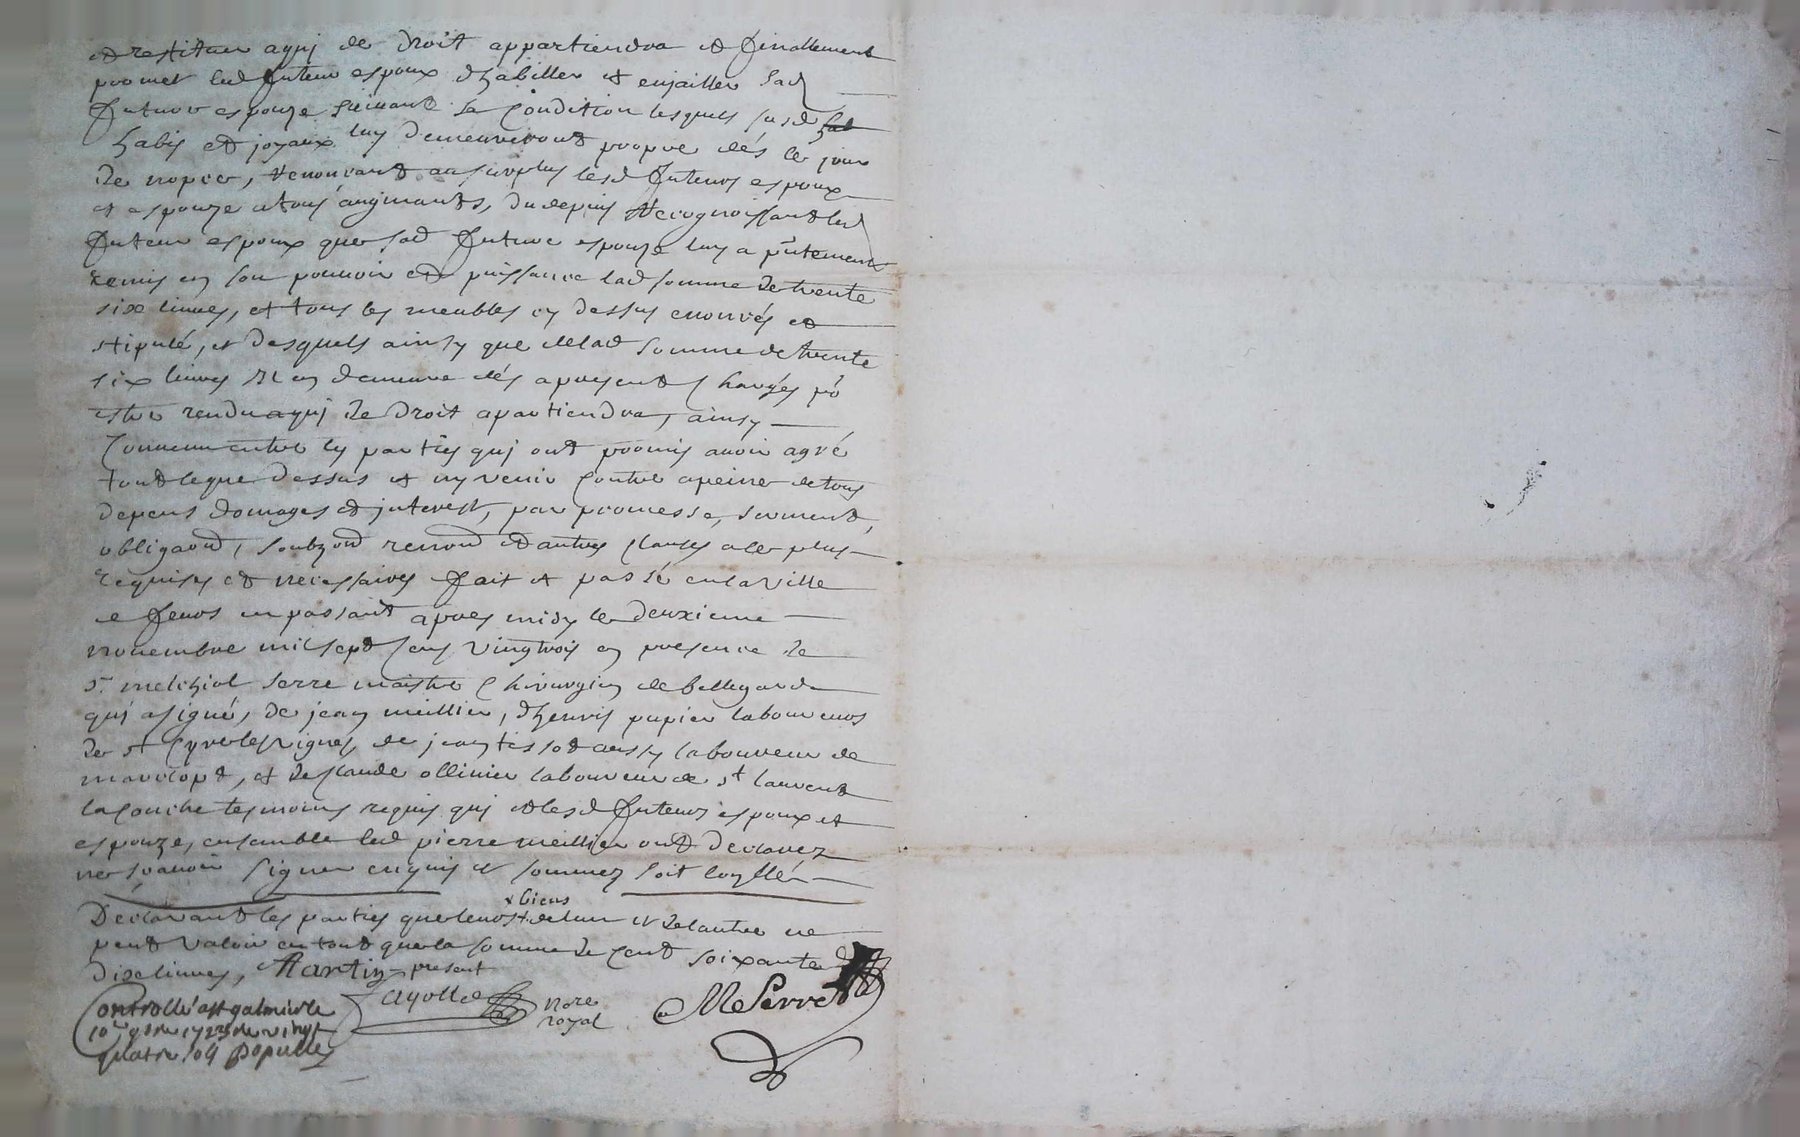 et restituer aqui de droit appartiendra et finallement
promet led futeur espoux dhabiller et enjailler sad
future espouze suivant sa condition lesquels susd
habis et joyaux luy demeureront propre dés le jour
de nopces, renonceant au surplus lesd futeurs espoux
et espouze atous augmants, du depuis Recognoissant led
futeur espoux que sad future espouze luy a pntement
remis en son pouvoir et puissance lad somme de trente
six livres, et tous les meubles cy dessus enoncés et
stipulé, et desquels ainsy que de lad somme de trente
six livres Il en demeure dés apresent chargés po
estre rendu aqui de droit apartiendra, ainsy
convenu entre les parties qui ont promis avoir agré
tout le que dessus et ny venir contre apeine de tous
depens domages et jnterest, par promesse, serment,
obligaon, soubzon renon et autres clauses ale plus
requises et necessaires fait et passé en la ville
de feurs en passant apres midy le deuxieme
novembre mil sept cens vingtrois en presence de
sr melchiol serre maistre chirurgien de bellegarde
qui a signé, de jean meillier, dhenris papier laboureurs
de st Cyr les vignes, de jean tissot aussy laboureur de
marclopt, et de claude ollivier laboureur de st laurent
la conche tesmoins requis qui et lesd futeurs espoux et
espouze, ensemble led pierre meillier ont declarez
ne scavoir signer enquis et sommez soit
Declarant les parties que leurs + de lun et de lautre ne
+ biens
peut valoir en tout que la somme de cent soixante
dixe livres, Martin present
Controllé a st galmier le
10e 9bre 1723 Re vingt
quatre sols
nore
royal
MeSerre